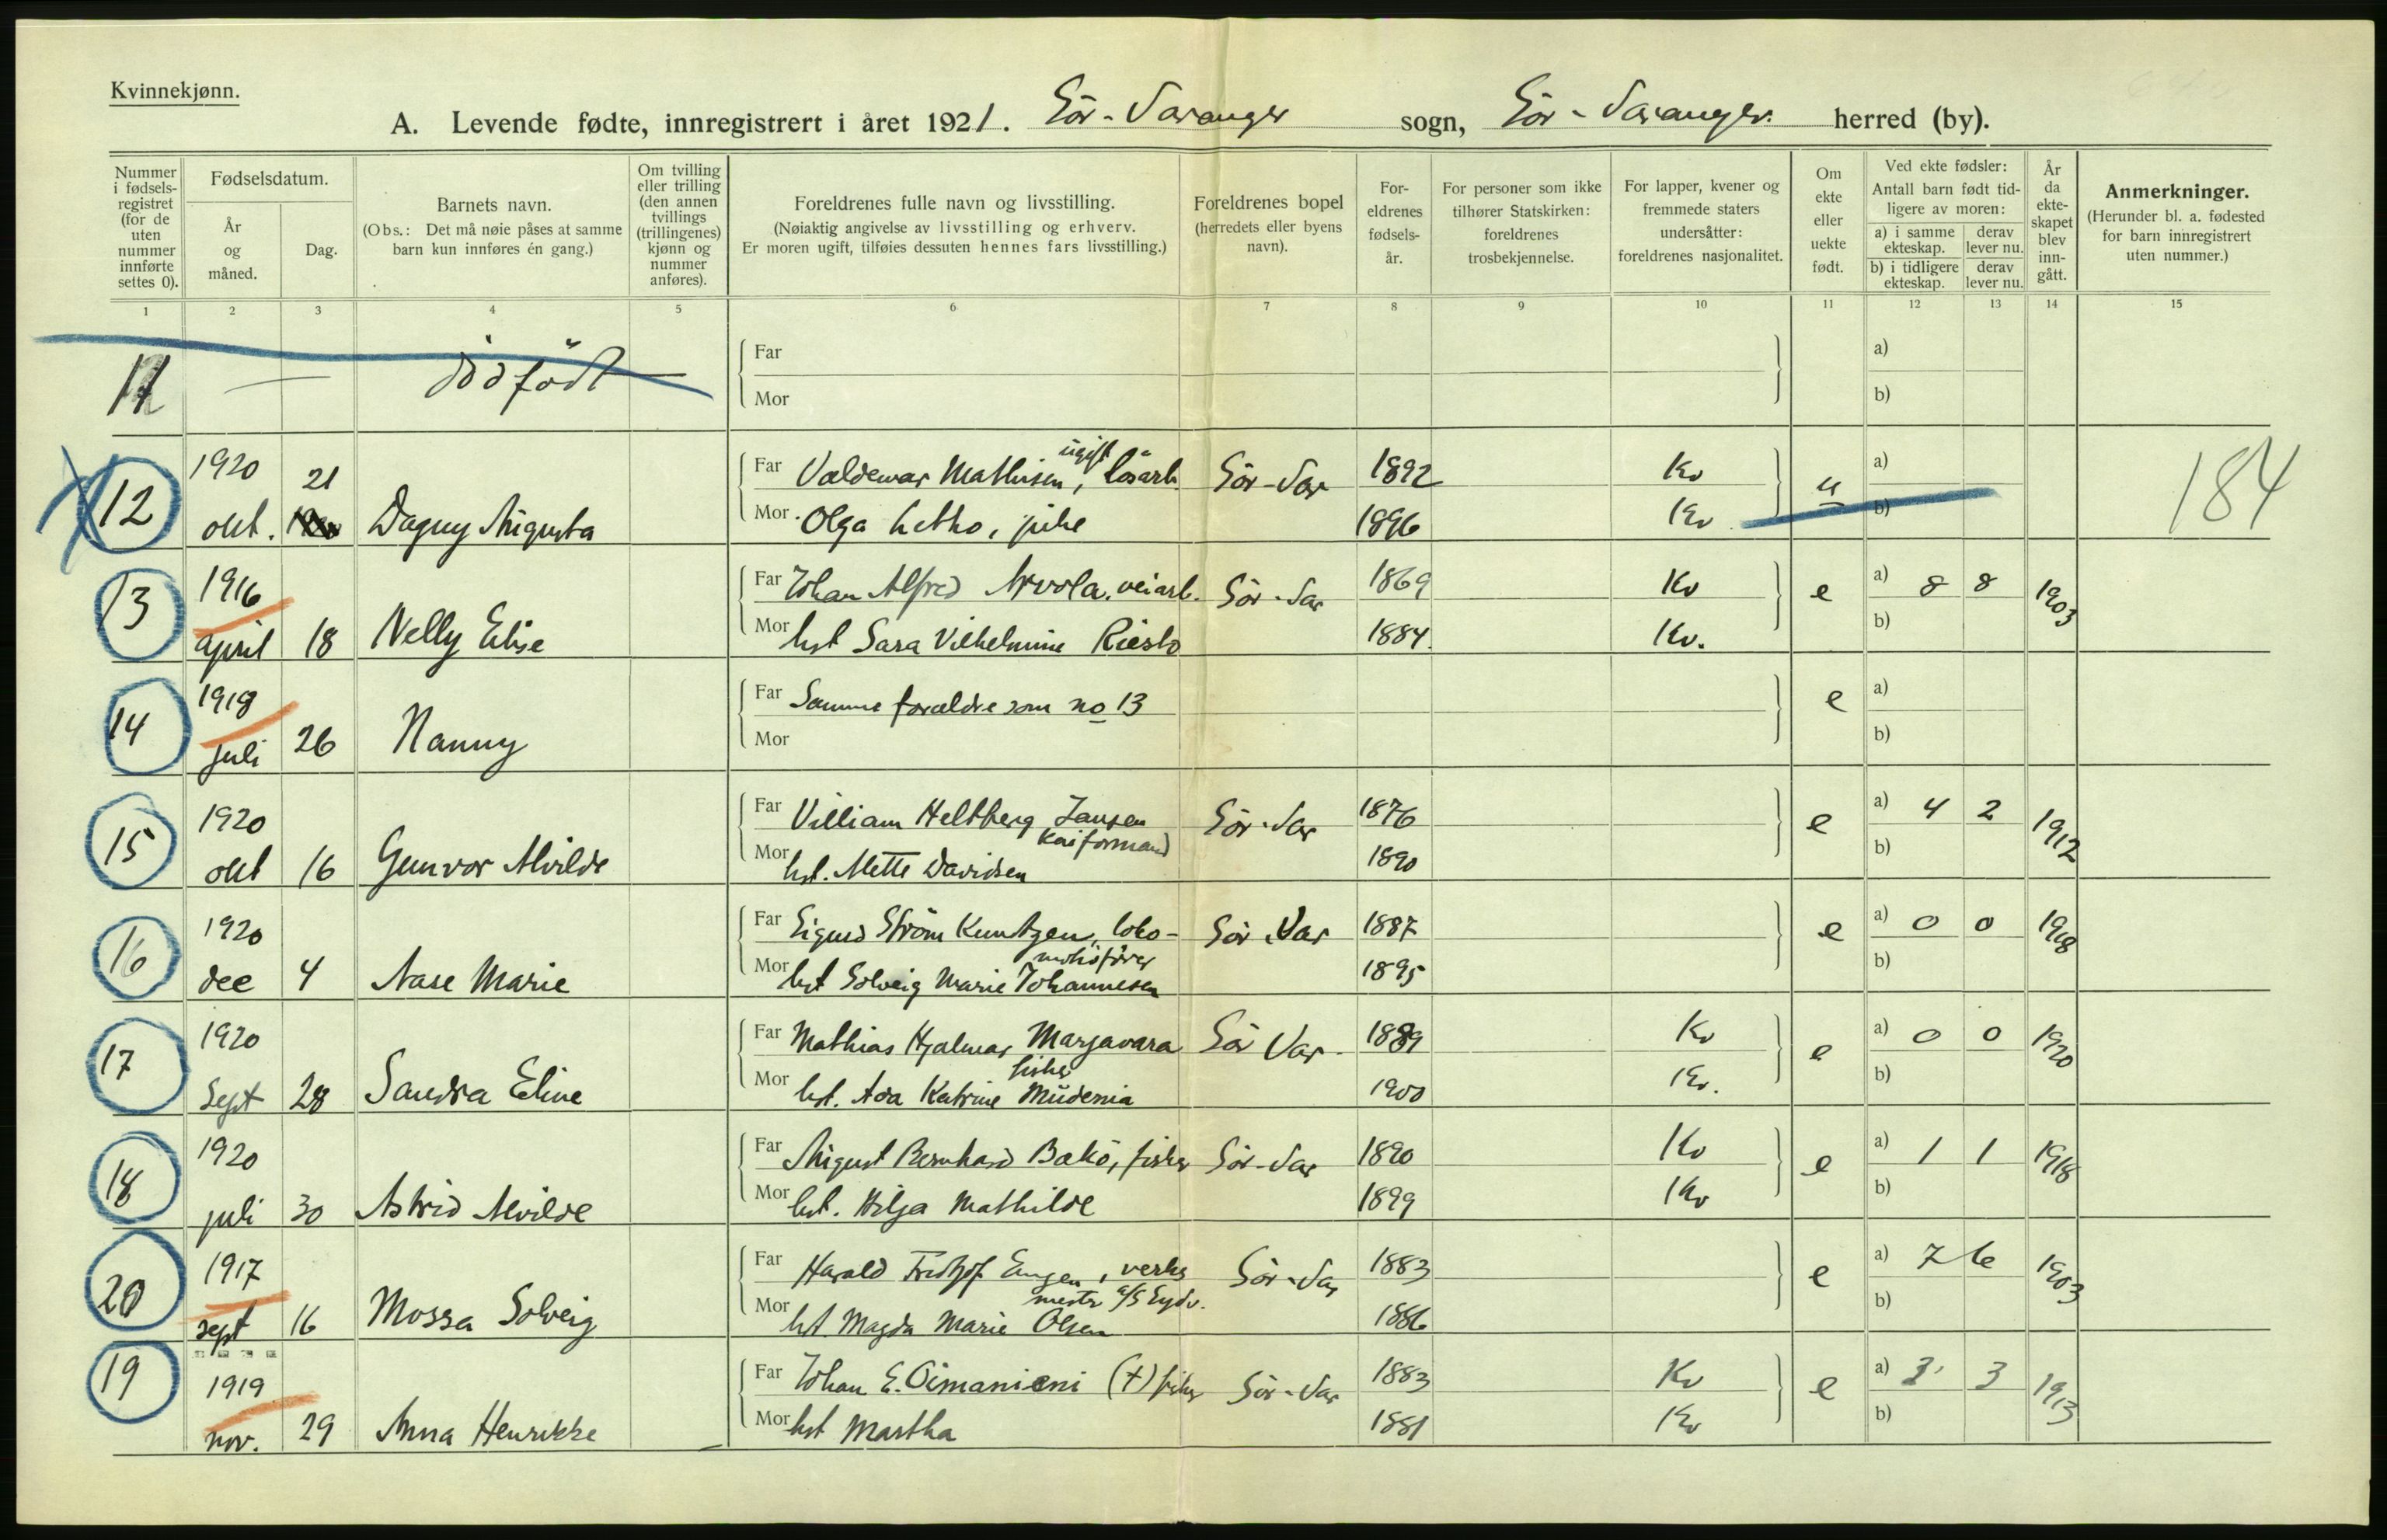 Kvinnekjønn.
A. Levende fødte, innregistrert i året 1921. Sör-Varanger sogn, Sör-Varanger. herred (by).
Nummer i fødsels-registret (for de uten nummer innførte settes 0).
Fødselsdatum.
År og måned.
Dag.
Barnets navn.
(Obs.: Det må nøie påses at samme barn kun innføres én gang.)
Om tvilling eller trilling (den annen tvillings (trillingenes) kjønn og nummer anføres).
Foreldrenes fulle navn og livsstilling.
(Nøiaktig angivelse av livsstilling og erhverv.
Er moren ugift, tilføies dessuten hennes fars livsstilling.)
Foreldrenes bopel (herredets eller byens navn).
For-eldrenes fødsels-år.
For personer som ikke tilhører Statskirken: foreldrenes trosbekjennelse.
For lapper, kvener og fremmede staters undersåtter: foreldrenes nasjonalitet.
Om ekte eller uekte født.
Ved ekte fødsler:
Antall barn født tid-ligere av moren:
a) i samme ekteskap. derav lever nu.
b) i tidligere ekteskap. derav lever nu.
År da ekte-skapet blev inn-gått.
Anmerkninger.
(Herunder bl. a. fødested for barn innregistrert uten nummer.)
1 2 3 4 5 6 7 8 9 10 11 12 13 14 15
11 — dödfödt Far a)
Mor b)
1920 21 Far Valdemar Mathisen, ugift lösarb. Sör-Var 1892 Kv u a) 184
12 okt. Dagny Augusta Mor Olga Letho, pike 1896 Kv b)
1916 Far Johan Alfred Arvola, veiarb. Sör-Var 1869 Kv e a) 8 8 1903
13 april 18 Nelly Elise Mor hst Sara Vilhelmine Riesto 1884. Kv. b)
1918 Far Samme forældre som no 13 e a)
14 juli 26 Nanny Mor b)
1920 Far Villiam Heltberg Jansen Sör-Var 1876 e a) 4 2 1912
kaiformand
15 okt 16 Gunvor Alvilde Mor hst. Mette Davidsen 1890 b)
1920 Far Sigurd Ström Kuntzen, loko- Sör Var 1887 e a) 0 0 1918
motivförer
16 dec 4 Aase Marie Mor hst Solveig Marie Johannesen 1895 b)
1920 Far Mathias Hjalmar Marjavara Sör Var. 1889 Kv e a) 0 0 1920
fisker
17 Sept 28 Sandra Eline Mor hst. Ada Katrine Mudenia 1900 Kv. b)
1920 Far August Bernhard Bakö, fisker Sör-Var 1890 Kv e a) 1 1 1918
18 juli 30 Astrid Alvilde Mor hst. Hilja Mathilde 1899 Kv b)
1917 Far Harald Fridtjof Engen, verks Sör-Var 1883 e a) 7 6 1903
mester a/S Sydv.
20 sept 16 Mossa Solveig Mor hst Magda Marie Olsen 1886 b)
19 1919 Far Johan E. Oimanieni (†) fisker Sör-Var 1883 Kv e a) 3 3 1913
nov. 29 Anna Henrikke Mor hst Martha 1881 Kv b)